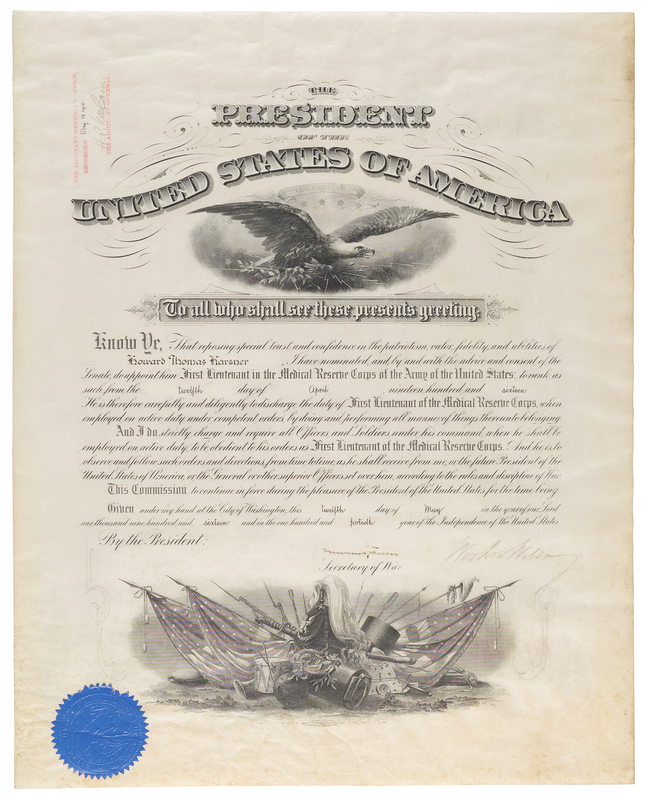 THE ADJUTANT GENERAL'S OFFICE.
RECORDED May
THE ADJUTANT GENERAL.
THE
PRESIDENT
OF THE
UNITED STATES OF AMERICA
To all who shall see these presents greeting:
Know Ye, That reposing special trust and confidence in the patriotism, valor, fidelity, and abilities of
Howard Thomas Karsner, I have nominated, and, by and with the advice and consent of the
Senate, do appoint him First Lieutenant in the Medical Reserve Corps of the Army of the United States: to rank as
such from the twelfth day of April nineteen hundred and sixteen
He is therefore carefully and diligently to discharge the duty of First Lieutenant of the Medical Reserve Corps, when
employed on active duty under competent orders, by doing and performing all manner of things thereunto belonging.
And I do strictly charge and require all Officers and Soldiers under his command, when he shall be
employed on active duty, to be obedient to his orders as First Lieutenant of the Medical Reserve Corps. And he is to
observe and follow such orders and directions, from time to time, as he shall receive from me, or the future President of the
United States of America, or the General or other superior Officers set over him, according to the rules and discipline of War.
This Commission to continue in force during the pleasure of the President of the United States for the time being.
Given under my hand at the City of Washington, this twelfth day of May in the year of our Lord
one thousand nine hundred and sixteen and in the one hundred and fortieth year of the Independence of the United States.
By the President:
Woodrow Wilson
Secretary of War